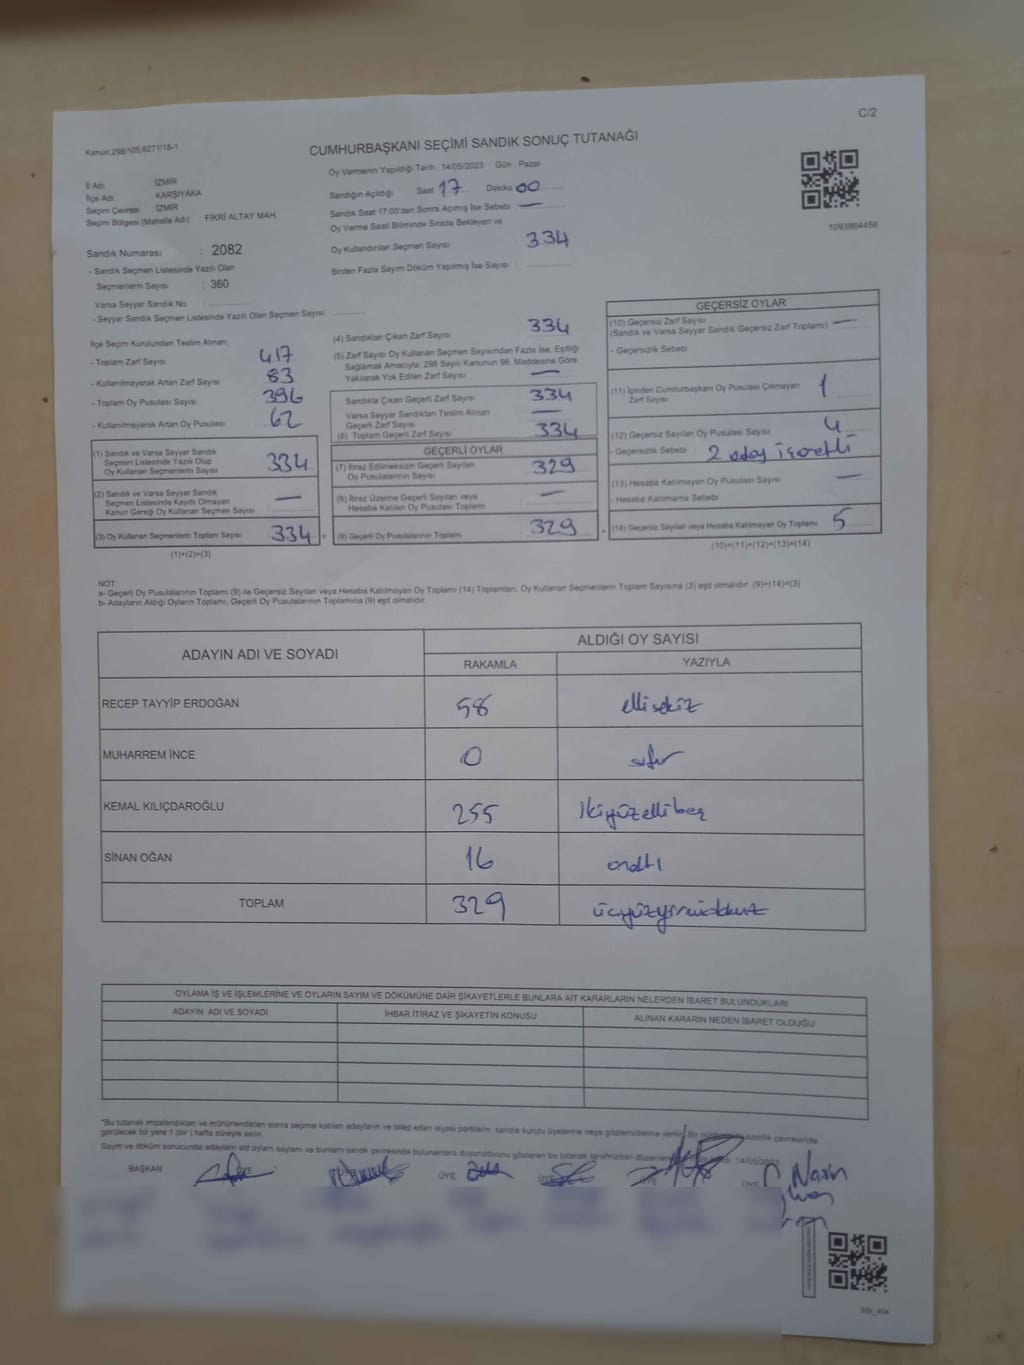 C/2
Kanun:298/105;6271/18-1
CUMHURBAŞKANI SEÇİMİ SANDIK SONUÇ TUTANAĞI
İl Adı İZMİR
İlçe Adı KARŞIYAKA
Seçim Çevresi İZMİR
Seçim Bölgesi (Mahalle Adı) : FİKRİ ALTAY MAH.
Sandık Numarası : 2082
- Sandık Seçmen Listesinde Yazılı Olan
Seçmenlerin Sayısı : 360
Varsa Seyyar Sandık No
- Seyyar Sandık Seçmen Listesinde Yazılı Olan Seçmen Sayısı:
Oy Vermenin Yapıldığı Tarih : 14/05/2023 Gün : Pazar
Sandığın Açıldığı Saat 17 Dakika 00
Sandık Saat 17:00'den Sonra Açılmış İse Sebebi : —
Oy Verme Saati Bitiminde Sırada Bekleyen ve
Oy Kullandırılan Seçmen Sayısı 334
Birden Fazla Sayım Döküm Yapılmış İse Sayısı :
1093864456
İlçe Seçim Kurulundan Teslim Alınan:
- Toplam Zarf Sayısı 417
- Kullanılmayarak Artan Zarf Sayısı 83
- Toplam Oy Pusulası Sayısı 396
- Kullanılmayarak Artan Oy Pusulası 62
(1) Sandık ve Varsa Seyyar Sandık
Seçmen Listesinde Yazılı Olup
Oy Kullanan Seçmenlerin Sayısı 334
(2) Sandık ve Varsa Seyyar Sandık
Seçmen Listesinde Kayıtlı Olmayan
Kanun Gereği Oy Kullanan Seçmen Sayısı —
(3) Oy Kullanan Seçmenlerin Toplam Sayısı 334
(1)+(2)=(3)
(4) Sandıktan Çıkan Zarf Sayısı 334
(5) Zarf Sayısı Oy Kullanan Seçmen Sayısından Fazla İse, Eşitliği
Sağlamak Amacıyla; 298 Sayılı Kanunun 98. Maddesine Göre
Yakılarak Yok Edilen Zarf Sayısı —
Sandıkta Çıkan Geçerli Zarf Sayısı 334
Varsa Seyyar Sandıktan Teslim Alınan
Geçerli Zarf Sayısı —
(6) Toplam Geçerli Zarf Sayısı 334
GEÇERLİ OYLAR
(7) İtiraz Edilmeksizin Geçerli Sayılan
Oy Pusulalarının Sayısı 329
(8) İtiraz Üzerine Geçerli Sayılan veya
Hesaba Katılan Oy Pusulası Toplamı —
(9) Geçerli Oy Pusulalarının Toplamı 329
GEÇERSİZ OYLAR
(10) Geçersiz Zarf Sayısı
(Sandık ve Varsa Seyyar Sandık Geçersiz Zarf Toplamı) —
- Geçersizlik Sebebi
(11) İçinden Cumhurbaşkanı Oy Pusulası Çıkmayan
Zarf Sayısı 1
(12) Geçersiz Sayılan Oy Pusulası Sayısı 4
- Geçersizlik Sebebi : 2 aday işaretli
(13) Hesaba Katılmayan Oy Pusulası Sayısı —
- Hesaba Katılmama Sebebi :
(14) Geçersiz Sayılan veya Hesaba Katılmayan Oy Toplamı 5
(10)+(11)+(12)+(13)=(14)
NOT:
a- Geçerli Oy Pusulalarının Toplamı (9) ile Geçersiz Sayılan veya Hesaba Katılmayan Oy Toplamı (14) Toplamları, Oy Kullanan Seçmenlerin Toplam Sayısına (3) eşit olmalıdır. (9)+(14)=(3)
b- Adayların Aldığı Oyların Toplamı, Geçerli Oy Pusulalarının Toplamına (9) eşit olmalıdır.
ADAYIN ADI VE SOYADI
ALDIĞI OY SAYISI
RAKAMLA YAZIYLA
RECEP TAYYİP ERDOĞAN 58 ellisekiz
MUHARREM İNCE 0 sıfır
KEMAL KILIÇDAROĞLU 255 ikiyüzellibeş
SİNAN OĞAN 16 onaltı
TOPLAM 329 üçyüzyirmidokuz
OYLAMA İŞ VE İŞLEMLERİNE VE OYLARIN SAYIM VE DÖKÜMÜNE DAİR ŞİKAYETLERLE BUNLARA AİT KARARLARIN NELERDEN İBARET BULUNDUKLARI
ADAYIN ADI VE SOYADI İHBAR İTİRAZ VE ŞİKAYETİN KONUSU ALINAN KARARIN NEDEN İBARET OLDUĞU
*Bu tutanak imzalandıktan ve mühürlendikten sonra seçime katılan adayların ve talep eden siyasi partilerin sandık kurulu üyelerine veya gözlemcilerine verilir. Bir sandık çevresinde
görülecek bir yere 1 (bir) hafta süreyle asılır.
Sayım ve döküm sonucunda adayların aldığı oyların sayısını ve bunların sandık çevresinde bulunanlara duyurulduğunu gösteren bu tutanak tarafımızdan 14/05/2023
BAŞKAN ÜYE ÜYE ÜYE ÜYE ÜYE